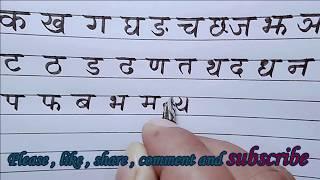 क ख ग घ ङ च छ ज झ ञ
ट ठ ड ढ ण त थ द ध न
प फ ब भ म य
Please , like , share , comment and subscribe